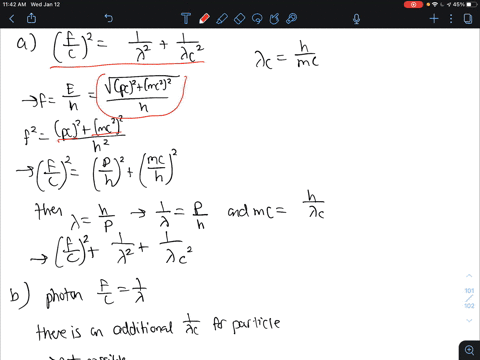 11:42 AM Wed Jan 12
45%
a) (f/c)² = 1/λ² + 1/λc²
λc = h/mc
→ f = E/h = √((pc)²+(mc²)²)/h
f² = (pc)²+(mc²)²/h²
→ (f/c)² = (p/h)² + (mc/h)²
then λ = h/p → 1/λ = p/h and mc = h/λc
→ (f/c)² + 1/λ² + 1/λc²
b) photon f/c = 1/λ
there is an additional 1/λc for particle
101
/
102